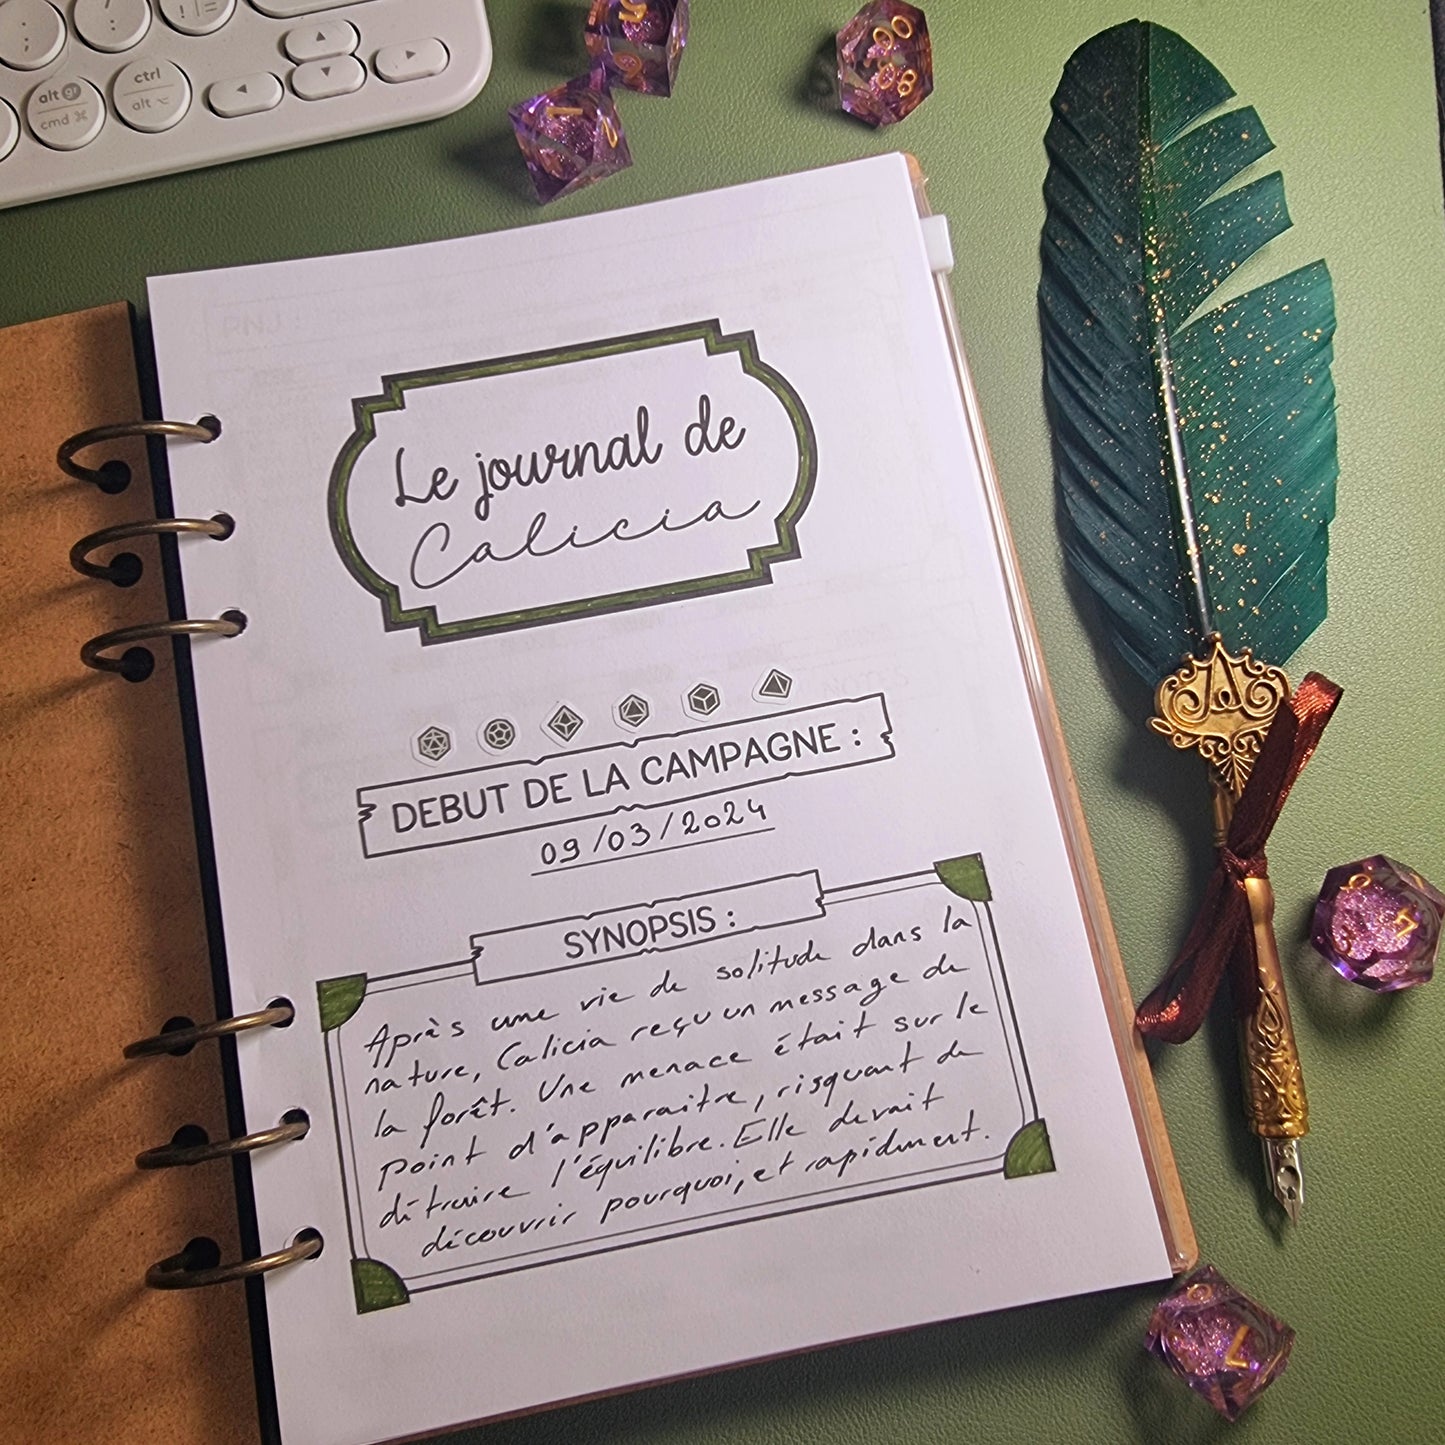 alt gr
cmd ⌘
ctrl
alt ⌥
Le journal de
Calicia
DEBUT DE LA CAMPAGNE :
09/03/2024
SYNOPSIS :
Après une vie de solitude dans la
nature, Calicia reçu un message de
la forêt. Une menace était sur le
point d'apparaitre, risquant de
détruire l'équilibre. Elle devait
découvrir pourquoi, et rapidement.